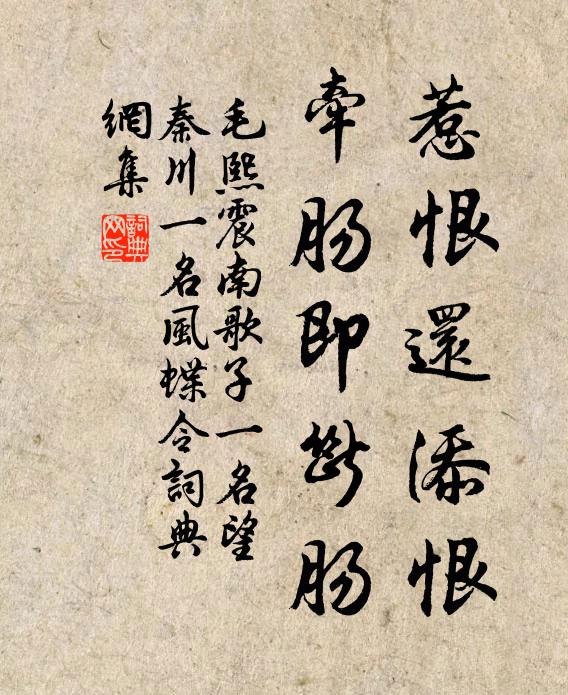 惹恨還添恨
牽腸即斷腸
毛熙震南歌子一名望
秦川一名風蝶令詞典
網集
詞典网印